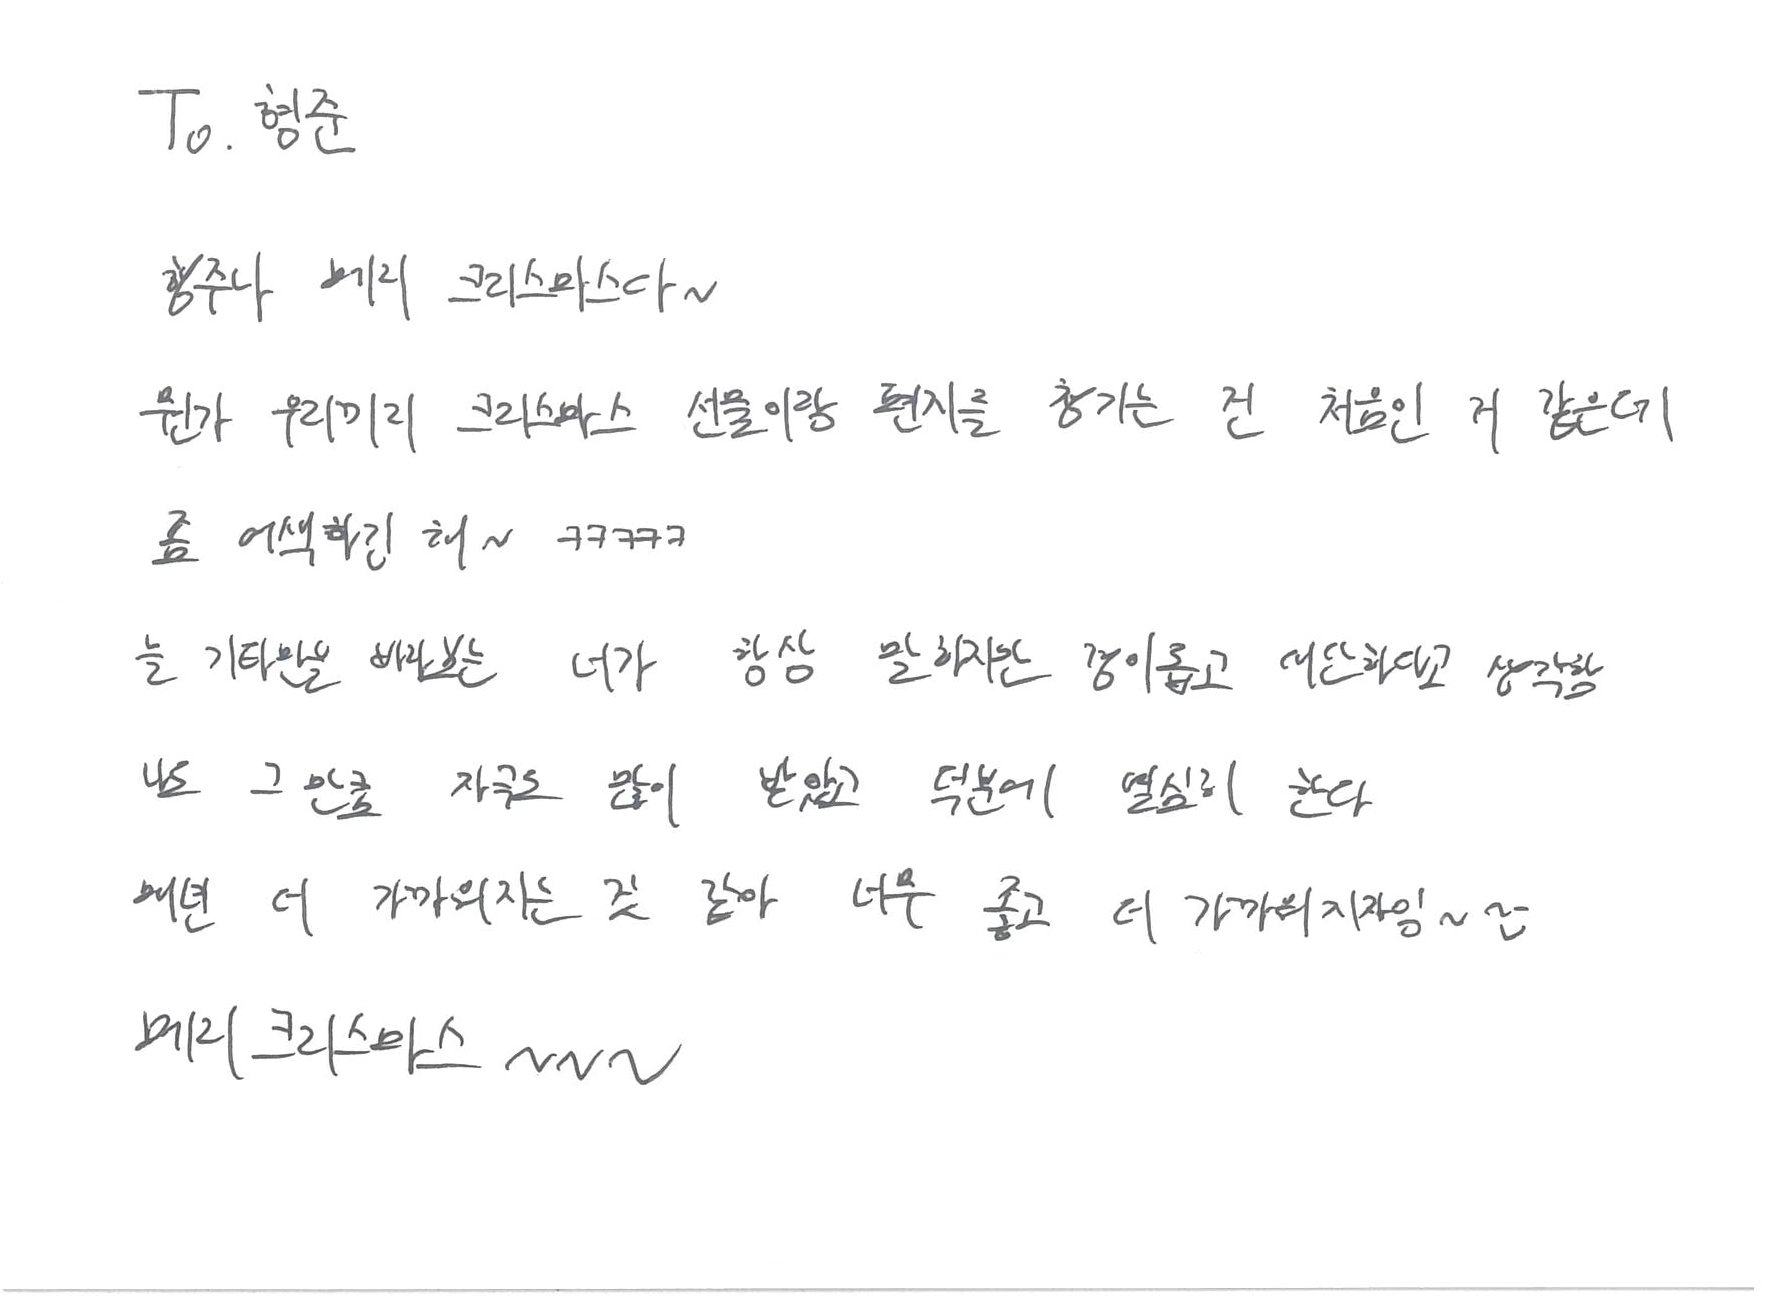 To. 형준
형주나 메리 크리스마스다~
뭔가 우리끼리 크리스마스 선물이랑 편지를 챙기는 건 처음인 거 같은데
좀 어색하긴 해~ ㅋㅋㅋㅋㅋ
늘 기타만을 바라보는 너가 항상 말하지만 경이롭고 대단하다고 생각함
나도 그만큼 자극도 많이 받았고 덕분에 열심히 한다
매년 더 가까워지는 것 같아 너무 좋고 더 가까워지자잉~
메리 크리스마스 ~~~